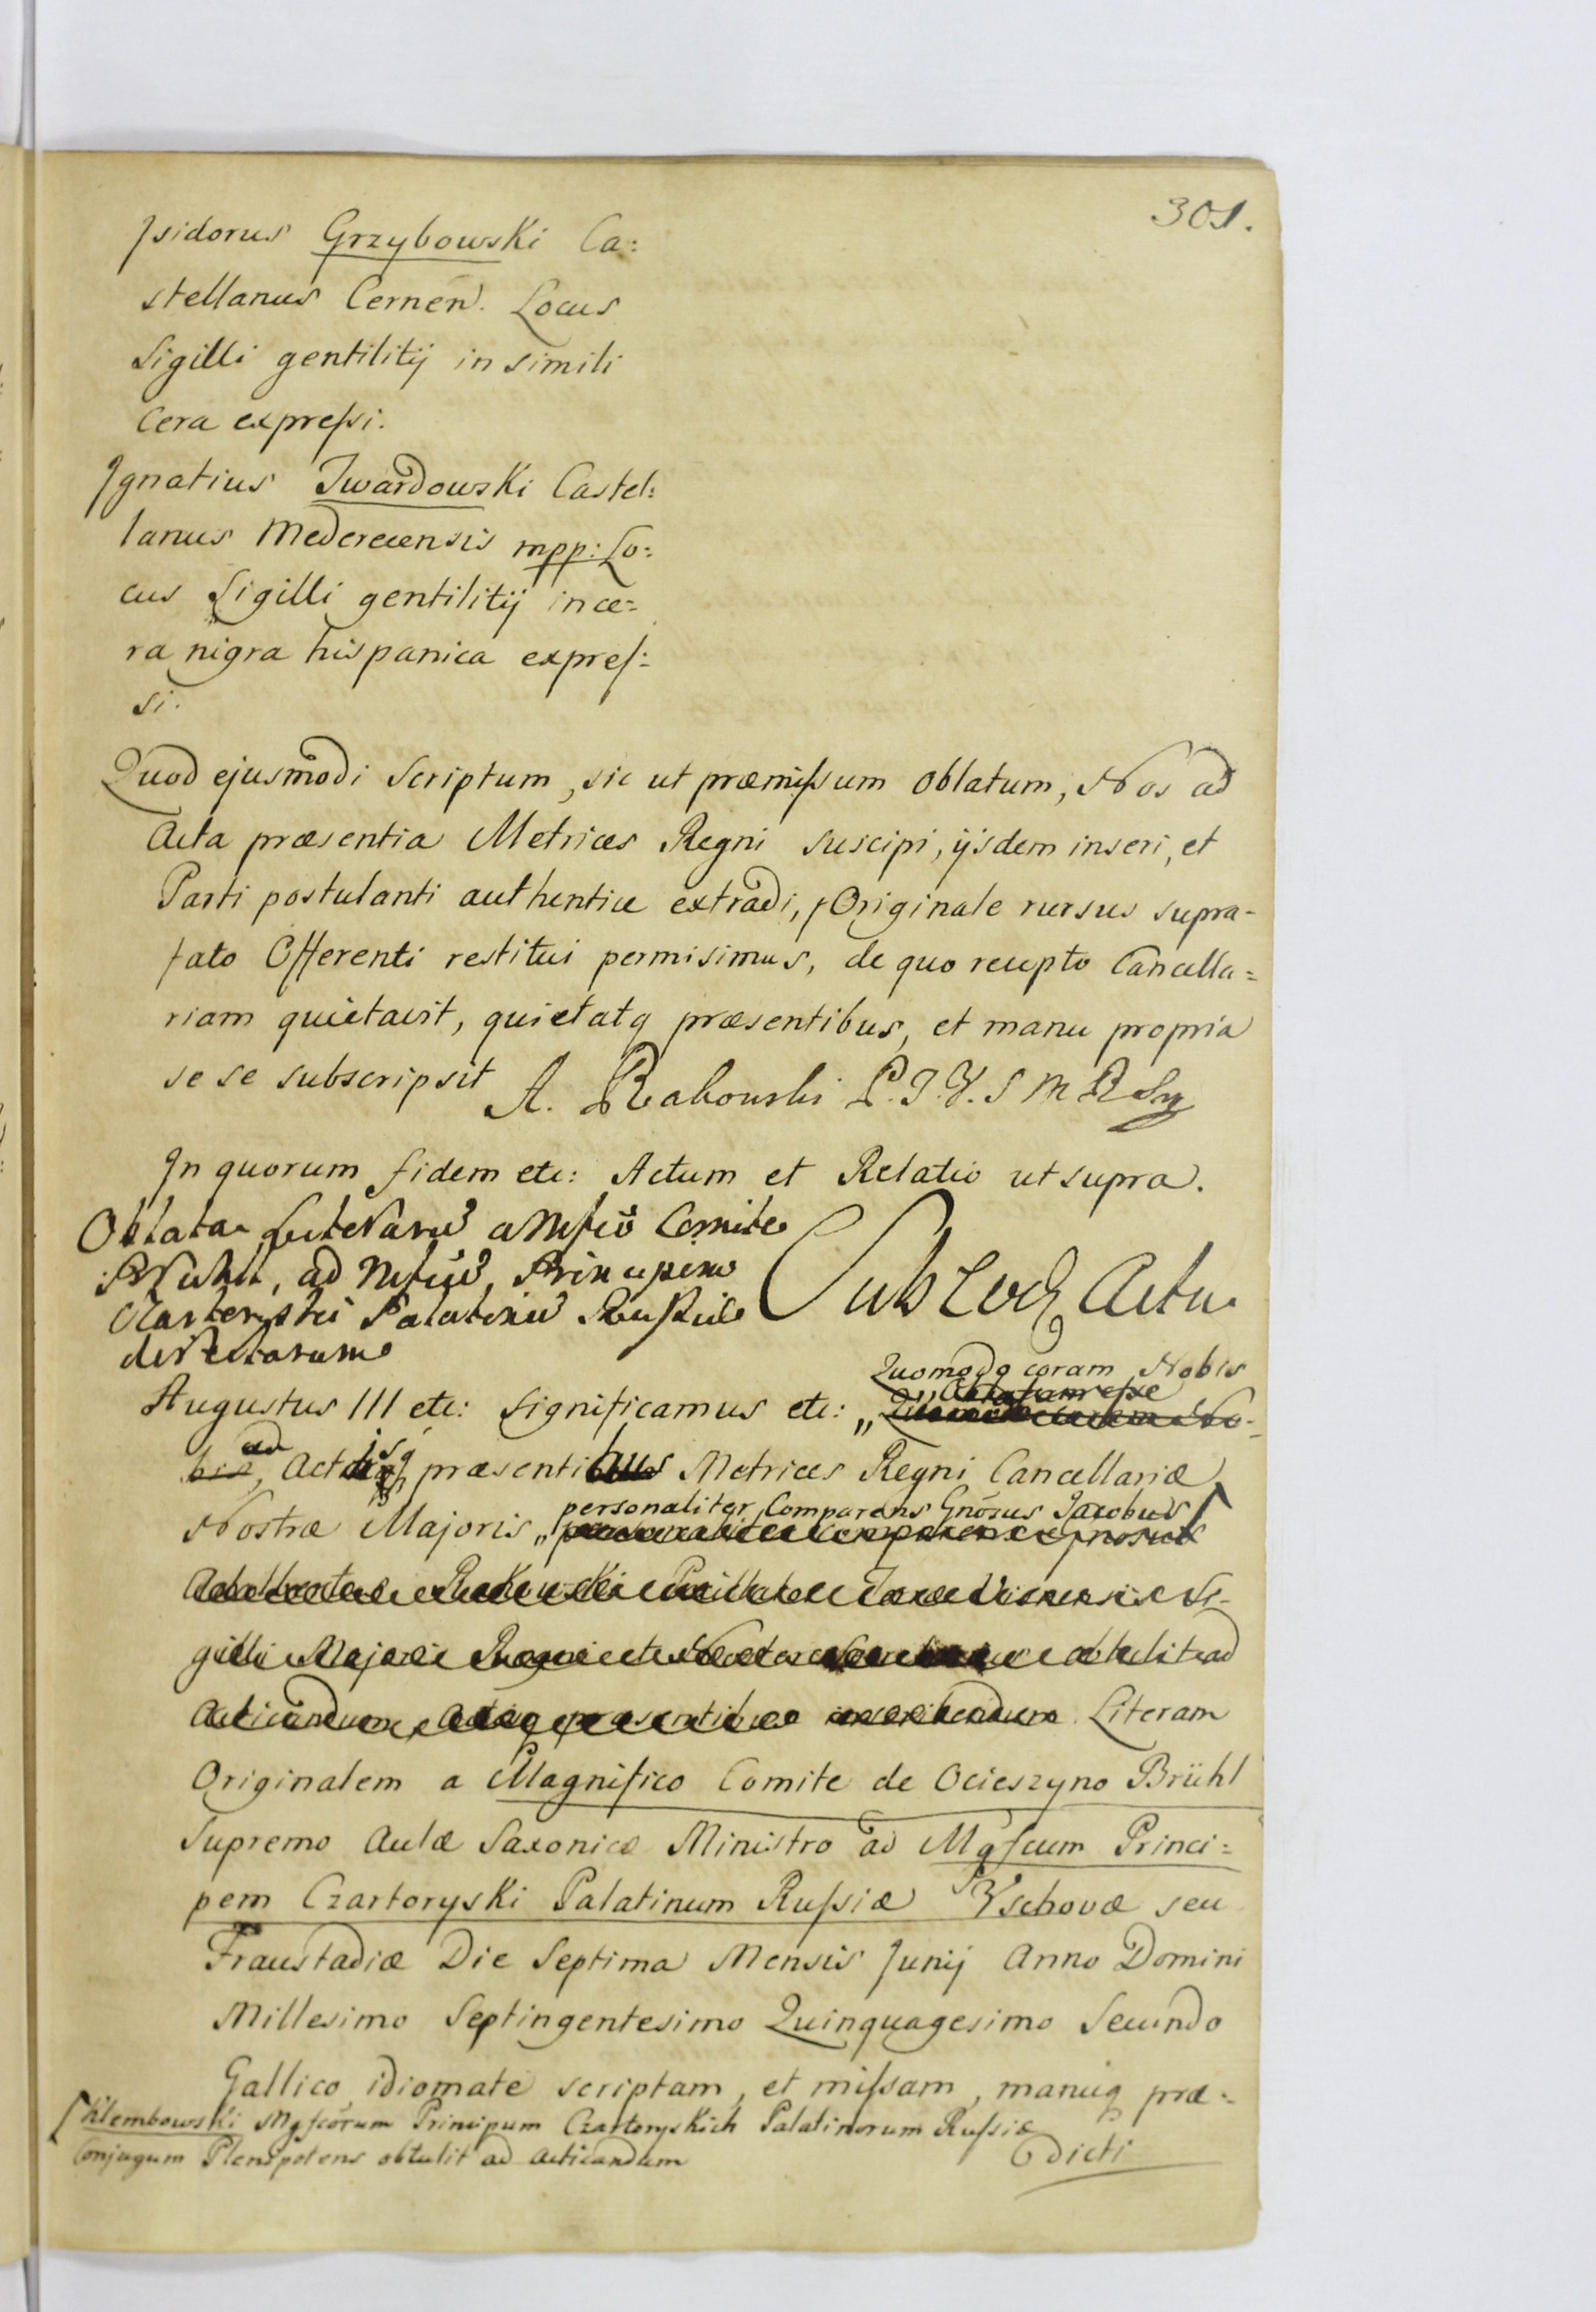 301.
Isidorus Grzybowski Ca:
stellanus Cernen̄. Locus
Sigilli gentilitij in simili
Cera expressi.
Ignatius Twardowski Castel:
lanus Mederecensis mpp: Lo:
cus Sigilli gentilitij in ce:
ra nigra hispanica expres:
si.
Quod ejusmodi Scriptum, sic ut præmissum oblatum, Nos ad
Acta præsentia Metrices Regni suscipi, ijsdem inseri, et
Parti postulanti authentice extradi, Originale rursus supra-
fato Offerenti restitui permisimus, de quo recepto Cancella=
riam quietavit, quietatq præsentibus, et manu propria
se se subscripsit A. Rakowski P.T.V.S M R
In quorum fidem etc: Actum et Relatio ut supra.
Oblata Literarū a Comite
Bruhl, ad Principem
Czartoryski Palatinū Russiæ
directarum
Sub Eod Actu
Quomodo coram Nobis
Augustus III etc: Significamus etc: „
ad Actisq præsentibus Metrices Regni Cancellariæ
personaliter Comparens Gnōsus Jacobus
Nostræ Majoris „
gilli Majoris Regni et obtulit ad
Acticandum, Actisq præsentibus inscribendum Literam
Originalem a Magnifico Comite de Ocieszyno Brühl
Supremo Aulæ Saxonicæ Ministro ad Mgfcum Princi:
pem Czartoryski Palatinum Russiæ Vschovæ seu
Fraustadiæ Die Septima Mensis Junij Anno Domini
Millesimo Septingentesimo Quinquagesimo Secundo
Gallico idiomate scriptam, et missam, manuq præ:
Klembowski Mgfcōrum Principum Czartoryskich Palatinorum Russiæ
Conjugum Plenipotens obtulit ad Acticandum
dicti